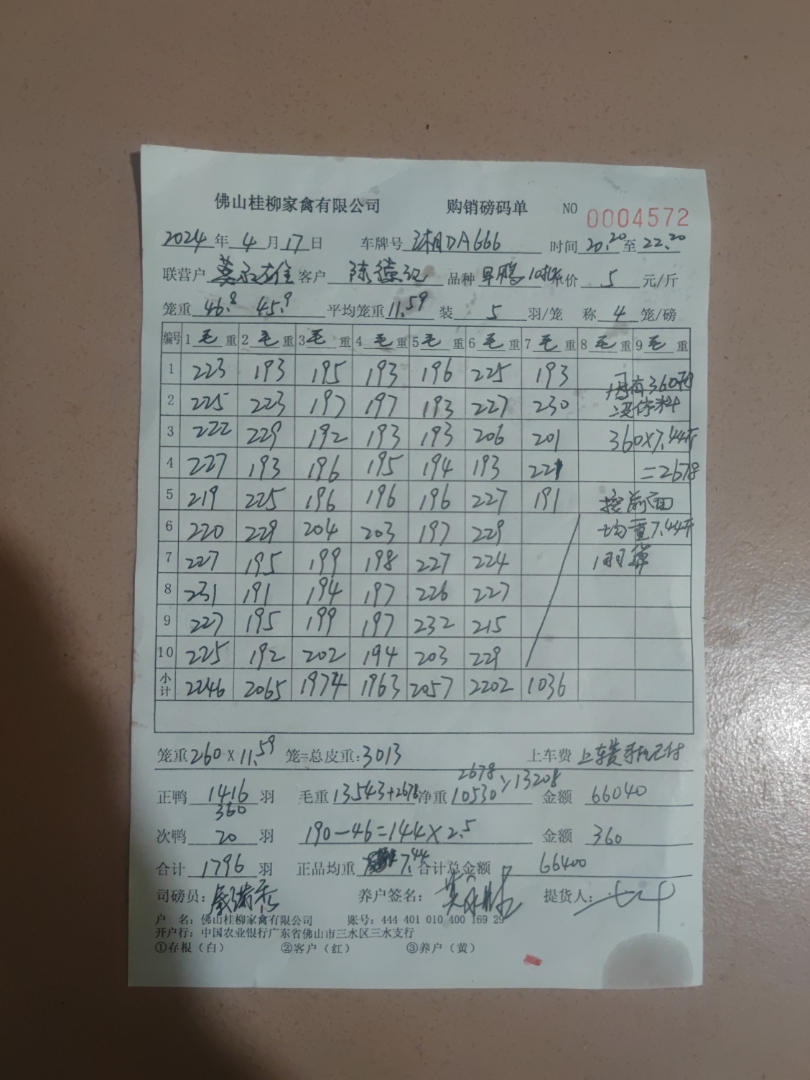 佛山桂柳家禽有限公司 购销磅码单 NO 0004572
2024年4月17日 车牌号 湘DA666 时间 20.20至22.20
联营户 客户 陈德记 品种 单价 5 元/斤
笼重 46.8 45.9 平均笼重 11.59 装 5 羽/笼 称 4 笼/磅
编号 1毛重 2毛重 3毛重 4毛重 5毛重 6毛重 7毛重 8毛重 9毛重
1 223 193 195 193 196 225 193 有360羽
2 225 223 197 197 193 227 230
3 222 229 192 193 193 206 201 360×7.44斤
4 227 193 196 195 194 193 221 =2678
5 219 225 196 196 196 227 191 按前面
6 220 229 204 203 197 229 均重7.44斤
7 227 195 199 198 227 224 1羽算
8 231 191 194 197 226 227
9 227 195 199 197 232 215
10 225 192 202 194 203 229
小计 2246 2065 1974 1963 2057 2202 1036
笼重 260×11.59 笼=总皮重:3013 上车费 上车费
2678 13208
正鸭 1416 羽 毛重 13543+2678 净重 10530 金额 66040
360
次鸭 20 羽 190-46=144×2.5 金额 360
合计 1796 羽 正品均重 7.44 合计总金额 66400
司磅员: 养户签名: 提货人:
户 名:佛山桂柳家禽有限公司 账号:444 401 010 400 169 29
开户行:中国农业银行广东省佛山市三水区三水支行
①存根(白) ②客户(红) ③养户(黄)